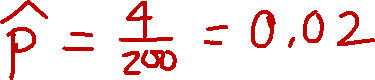 p̂ = 4/200 = 0.02